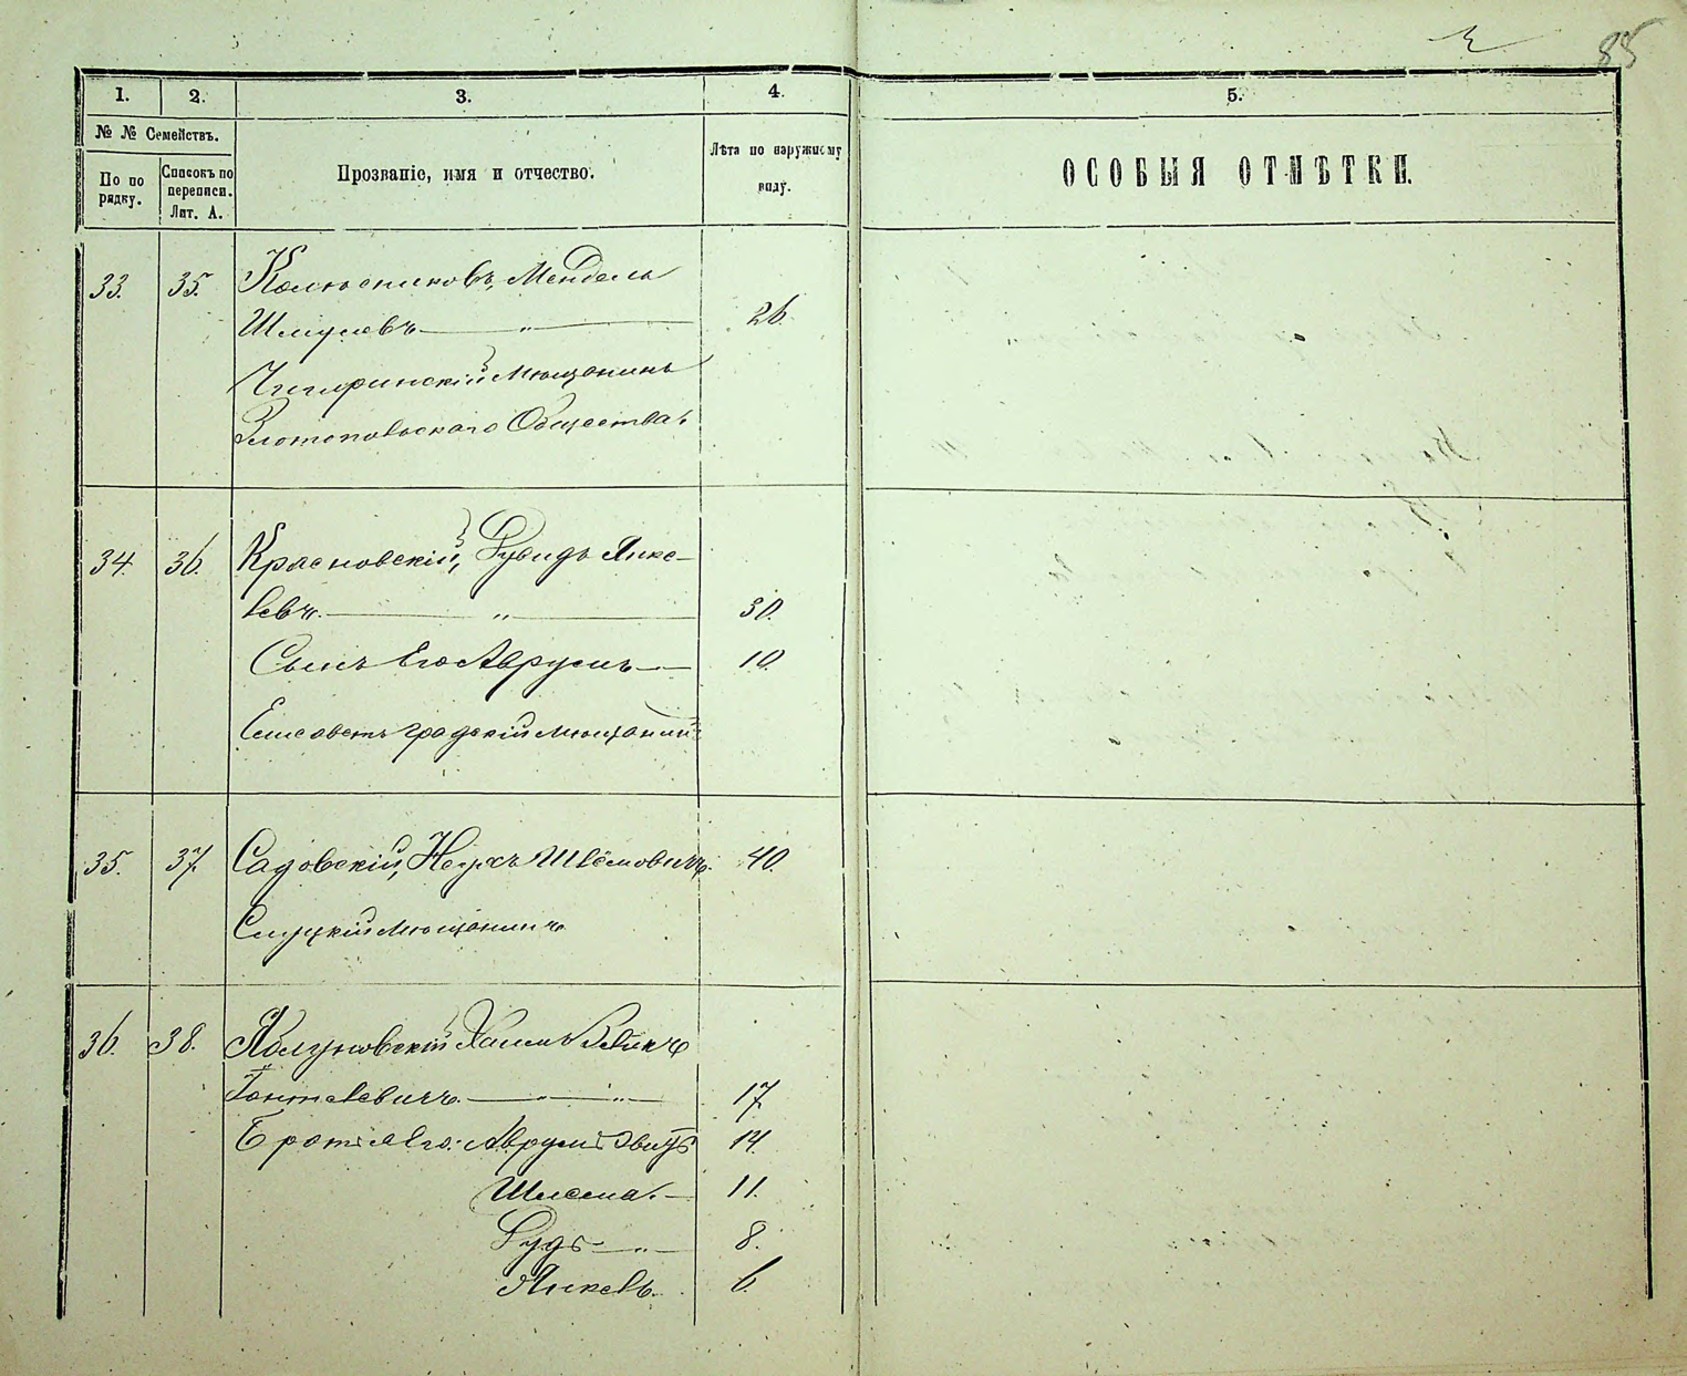 85
1. 2. 3. 4. 5.
№ № Семействъ.
По по рядку.
Списокъ по переписи. Лит. А.
Прозваніе, имя и отчество.
Лѣта по наружному виду.
ОСОБЫЯ ОТМѢТКИ.
33. 35. Колесниковъ, Мендель
Шмулевъ — " — 26.
Чигиринскій Мѣщанинъ
Златопольскаго Общества.
34. 36. Красновскій, Дувидъ Янке-
левъ. — " — 30.
Сынъ Его Аврумъ — 10.
Елисаветъ градскій мѣщанин
35. 37. Садовскій, Нсухъ Шлёмовичъ. 40.
Слуцкій мѣщанинъ
36. 38. Яблуновскій Хаимъ
— " — " — 17.
Братья Его: Аврумъ 14.
Шлема. — 11.
Дудъ — " — 8.
Янкель. 6.